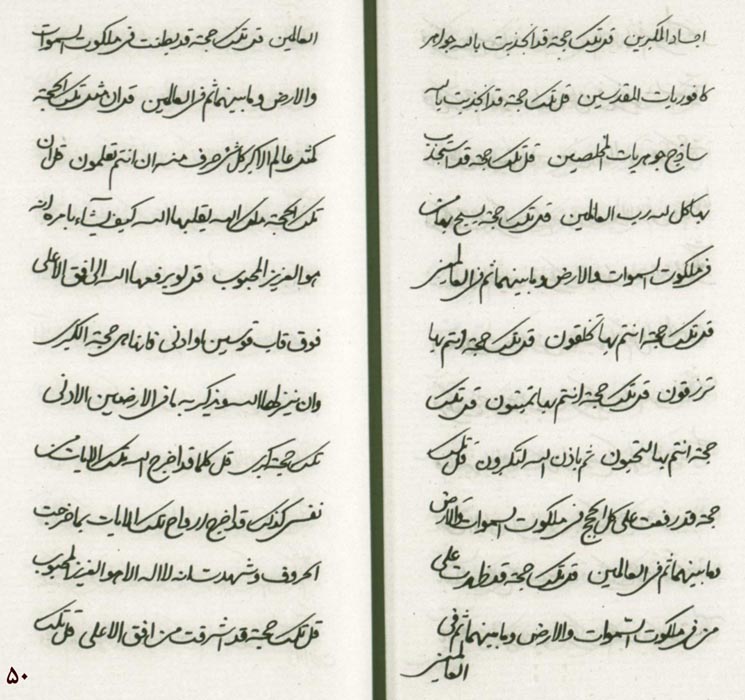 اجساد المكبرين قل تلك حجة قد انجذبت بالله جواهر
كافوريات المقدسين قل تلك حجة قد انجذبت بالله
ساذج جوهريات المخلصين قل تلك حجة قد استجذب
بها كل لله رب العالمين قل تلك حجة يسبح بها من
في ملكوت السموات والارض وما بينهما ثم في العالمين
قل تلك حجة انتم بها تخلقون قل تلك حجة انتم بها
ترزقون قل تلك حجة انتم بها تميتون قل تلك
حجة انتم بها لتحيون ثم باذن الله لتكرون قل تلك
حجة قد رفعت على كل الحجج في ملكوت السموات والارض
وما بينهما ثم في العالمين قل تلك حجة قد ظهرت على
من في ملكوت السموات والارض وما بينهما ثم في
العالمين
العالمين قل تلك حجة قد بطنت في ملكوت السموات
والارض وما بينهما ثم في العالمين قل ان مثل تلك الحجة
كمثل عالم الاكبر كل شئ حرف منه ان انتم تعلمون قل ان
تلك الحجة ملك الله يقلبها الله كيف يشاء بامره انه
هو العزيز المحبوب قل لو يرفعها الله الى الافق الاعلى
فوق قاب قوسين او ادنى فانها هي حجته الكبرى
وان ينزلها الله ويذكر به ما في الارضين الادنى
تلك حجة كبرى قل كلما قد اخرج الله تلك الايات من
نفس كذلك قد اخرج ارواح تلك الايات بما خرجت
الحروف وشهدت انه لا اله الا هو العزيز المحبوب
قل تلك حجة قد اشرقت من افق الاعلى قل تلك
۵۰